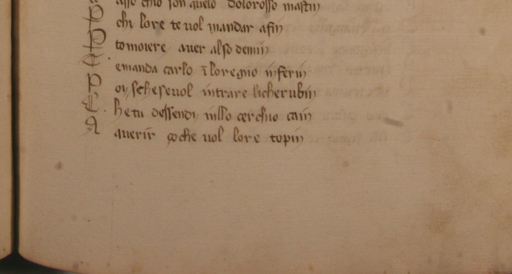 asse chio son quelo dolorosso mastin
P chi lore te vol mandar afin
P tomovere aver also demin
E emanda carlo ī loregno inferin
P oy se sesevol intrare li cherubin
E he tu dessendi nillo cerchio cain
A averir ꝑche vol lore topin